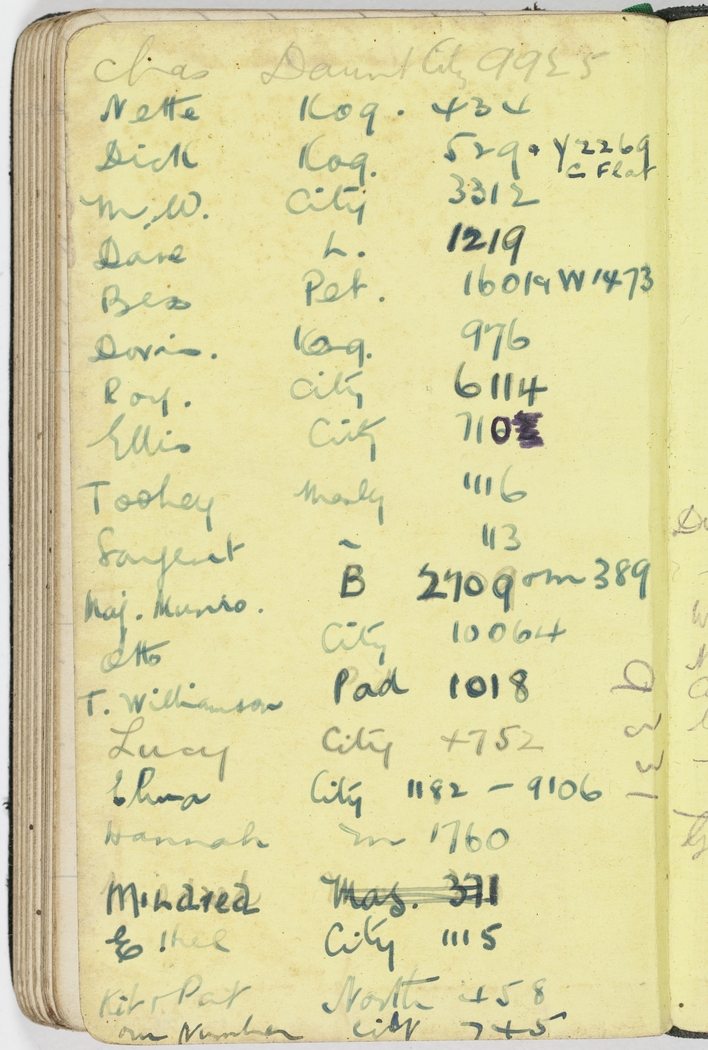 Chas Daunt City 9925
Nette Kog. 434
Dick Kog. 529 • Y2269
C Flat
M.W. City 3312
Dave L. 1219
Bess Pet. 1601 W1473
Doris. Kog. 976
Roy. City 6114
Ellis City 710
Toohey Manly 1116
Sargent ~ 113
Maj. Munro. B 2709 or m 389
Otto City 10064
T. Williamson Pad 1018
Lucy City 4752
9331
Elma City 1182 - 9106
Hannah m 1760
Mildred Mas. 371
Ethel City 1115
Kit & Pat North 458
our Number City 745